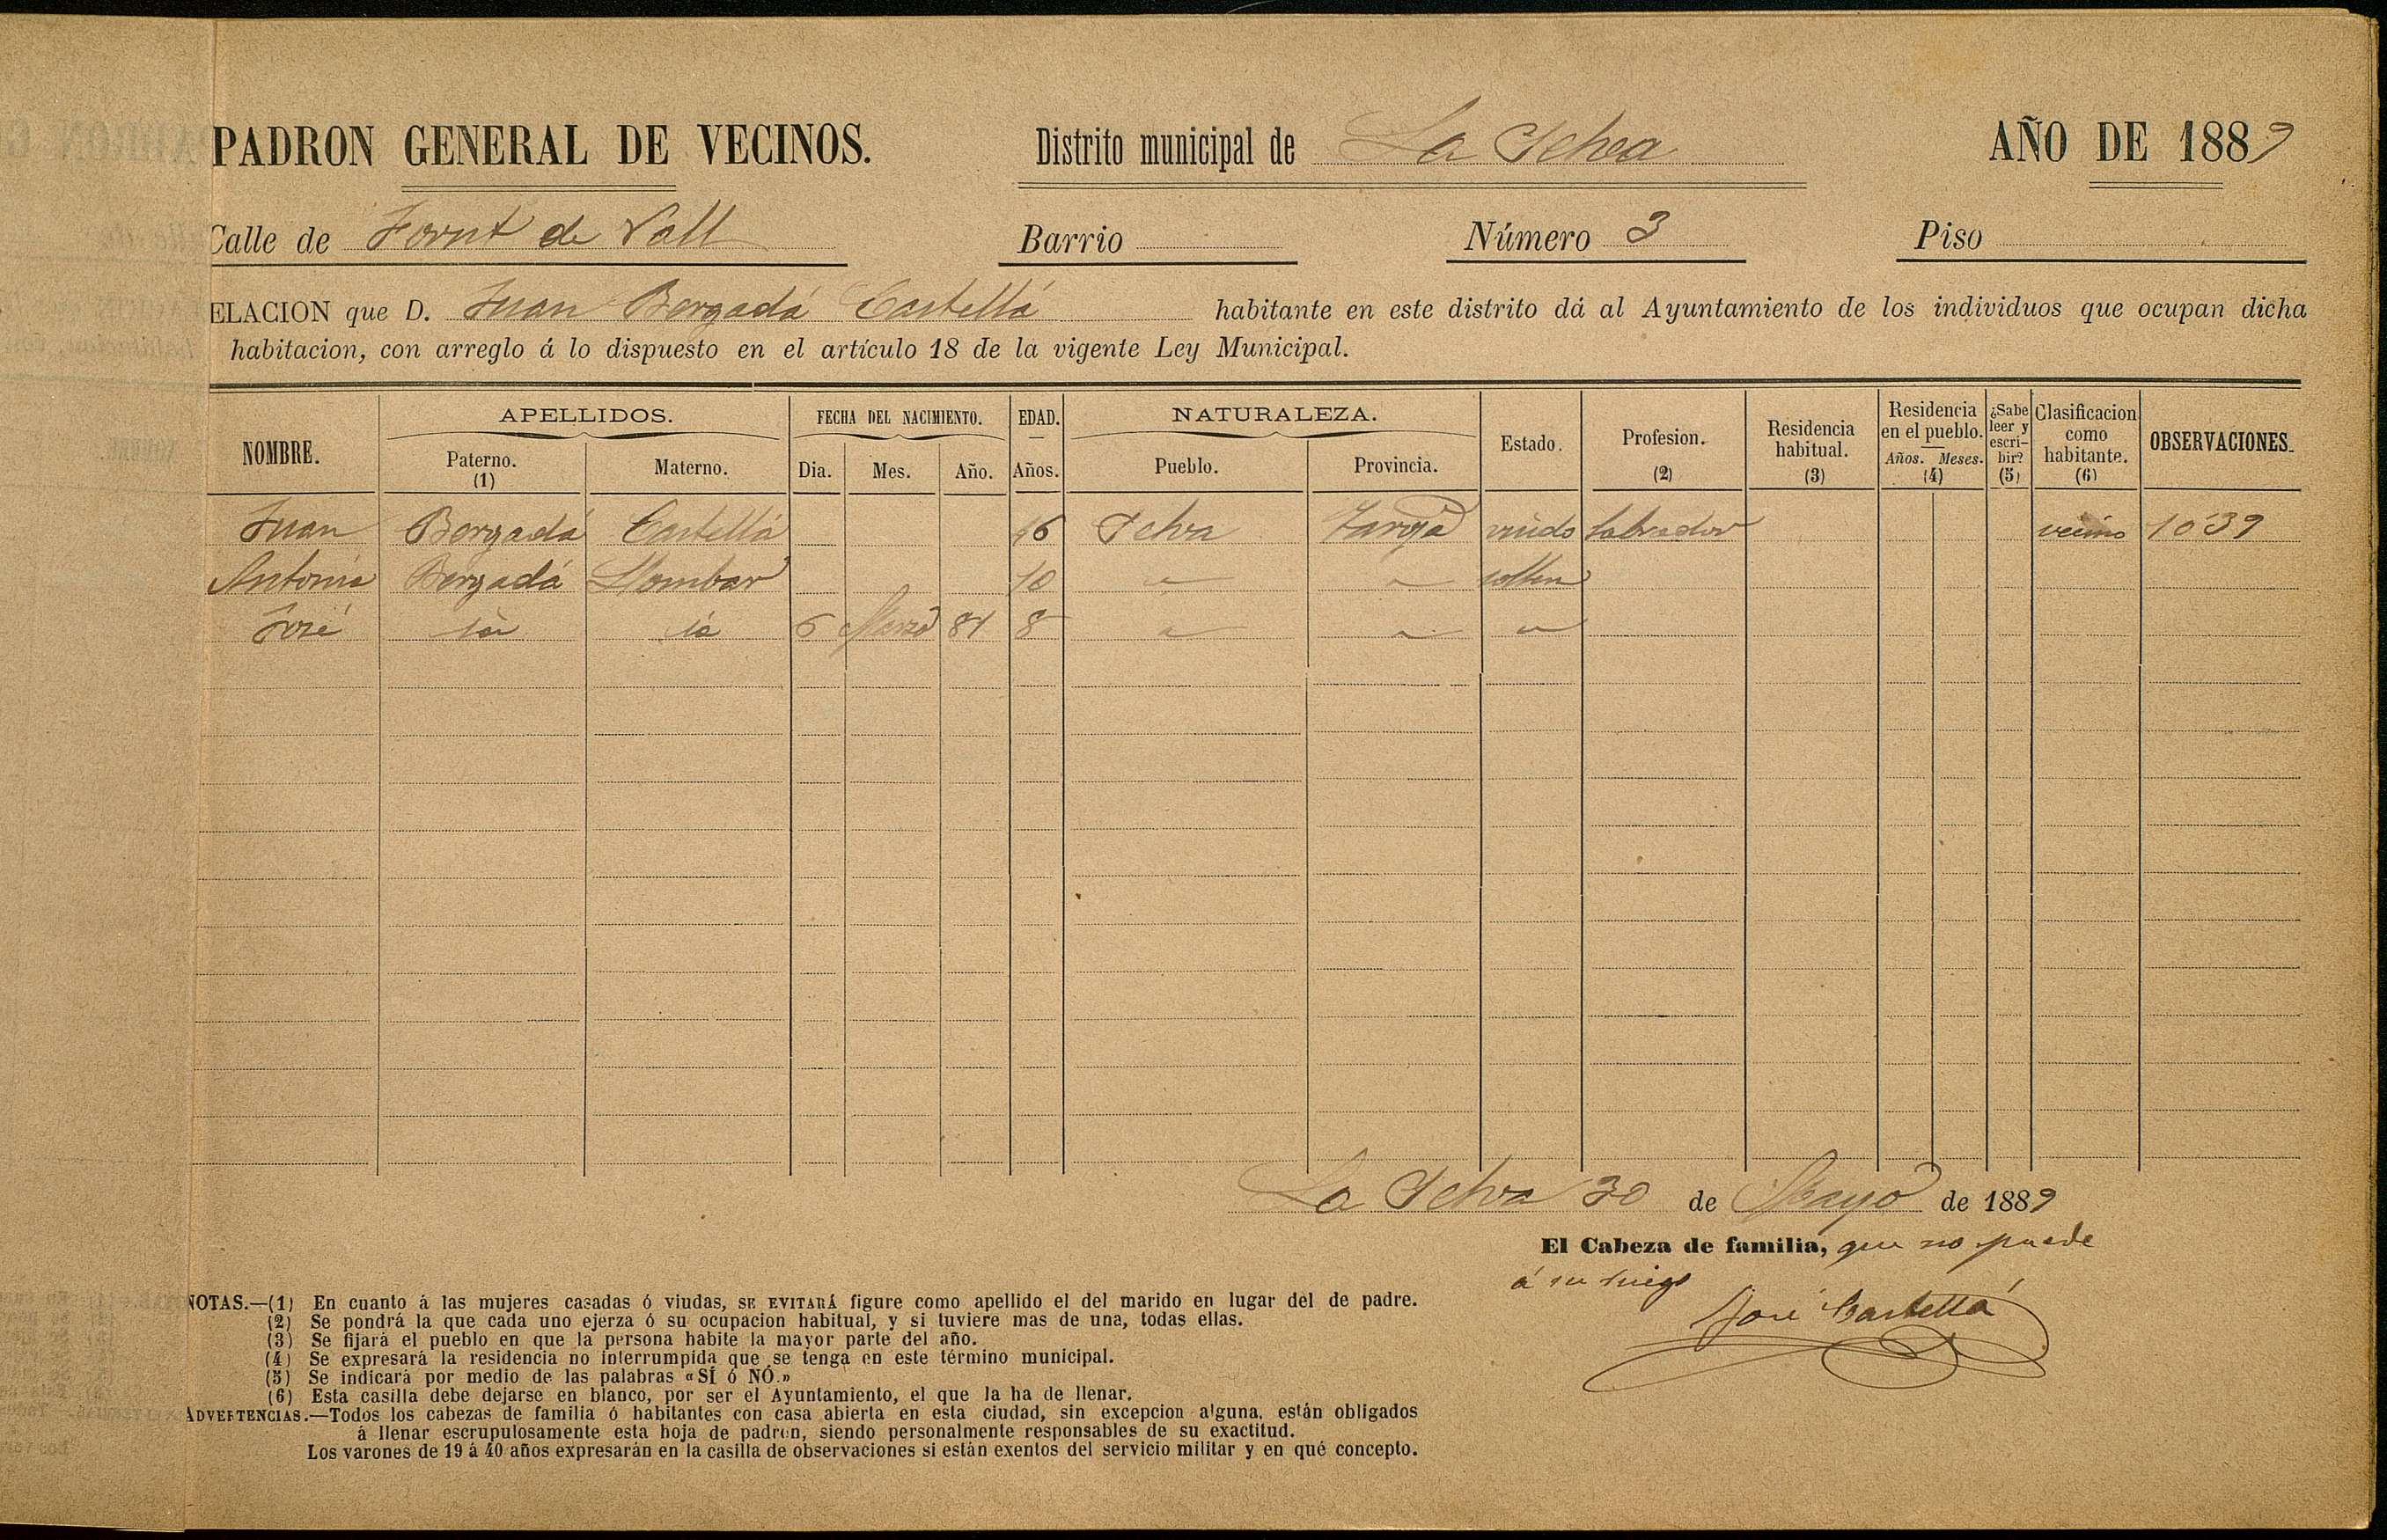 PADRON GENERAL DE VECINOS. Distrito municipal de La Selva AÑO DE 1889
Calle de Fornt de Vall Barrio Número 3 Piso
ELACION que D. Juan Bergadá Castellá habitante en este distrito dá al Ayuntamiento de los individuos que ocupan dicha
habitacion, con arreglo á lo dispuesto en el artículo 18 de la vigente Ley Municipal.
NOMBRE. APELLIDOS. FECHA DEL NACIMIENTO. EDAD. NATURALEZA. Estado. Profesion. (2) Residencia habitual. (3) Residencia en el pueblo. Años. Meses. (4) ¿Sabe leer y escribir? (5) Clasificacion como habitante. (6) OBSERVACIONES.
Paterno. (1) Materno. Dia. Mes. Año. Años. Pueblo. Provincia.
Juan Bergadá Castellá 46 Selva Tarrga viudo labrador vecino 1039
Antonia Bergadá Llombar 10 " " solten
José id id 6 Marzo 81 8 " " "
La Selva 30 de Mayo de 1889
El Cabeza de familia, que no puede
á su ruego
José Castellá
NOTAS.—(1) En cuanto á las mujeres casadas ó viudas, SE EVITARÁ figure como apellido el del marido en lugar del de padre.
(2) Se pondrá la que cada uno ejerza ó su ocupacion habitual, y si tuviere mas de una, todas ellas.
(3) Se fijará el pueblo en que la persona habite la mayor parte del año.
(4) Se expresará la residencia no interrumpida que se tenga en este término municipal.
(5) Se indicará por medio de las palabras «SÍ ó NÓ.»
(6) Esta casilla debe dejarse en blanco, por ser el Ayuntamiento, el que la ha de llenar.
ADVERTENCIAS.—Todos los cabezas de familia ó habitantes con casa abierta en esta ciudad, sin excepcion alguna, están obligados
á llenar escrupulosamente esta hoja de padron, siendo personalmente responsables de su exactitud.
Los varones de 19 á 40 años expresarán en la casilla de observaciones si están exentos del servicio militar y en qué concepto.